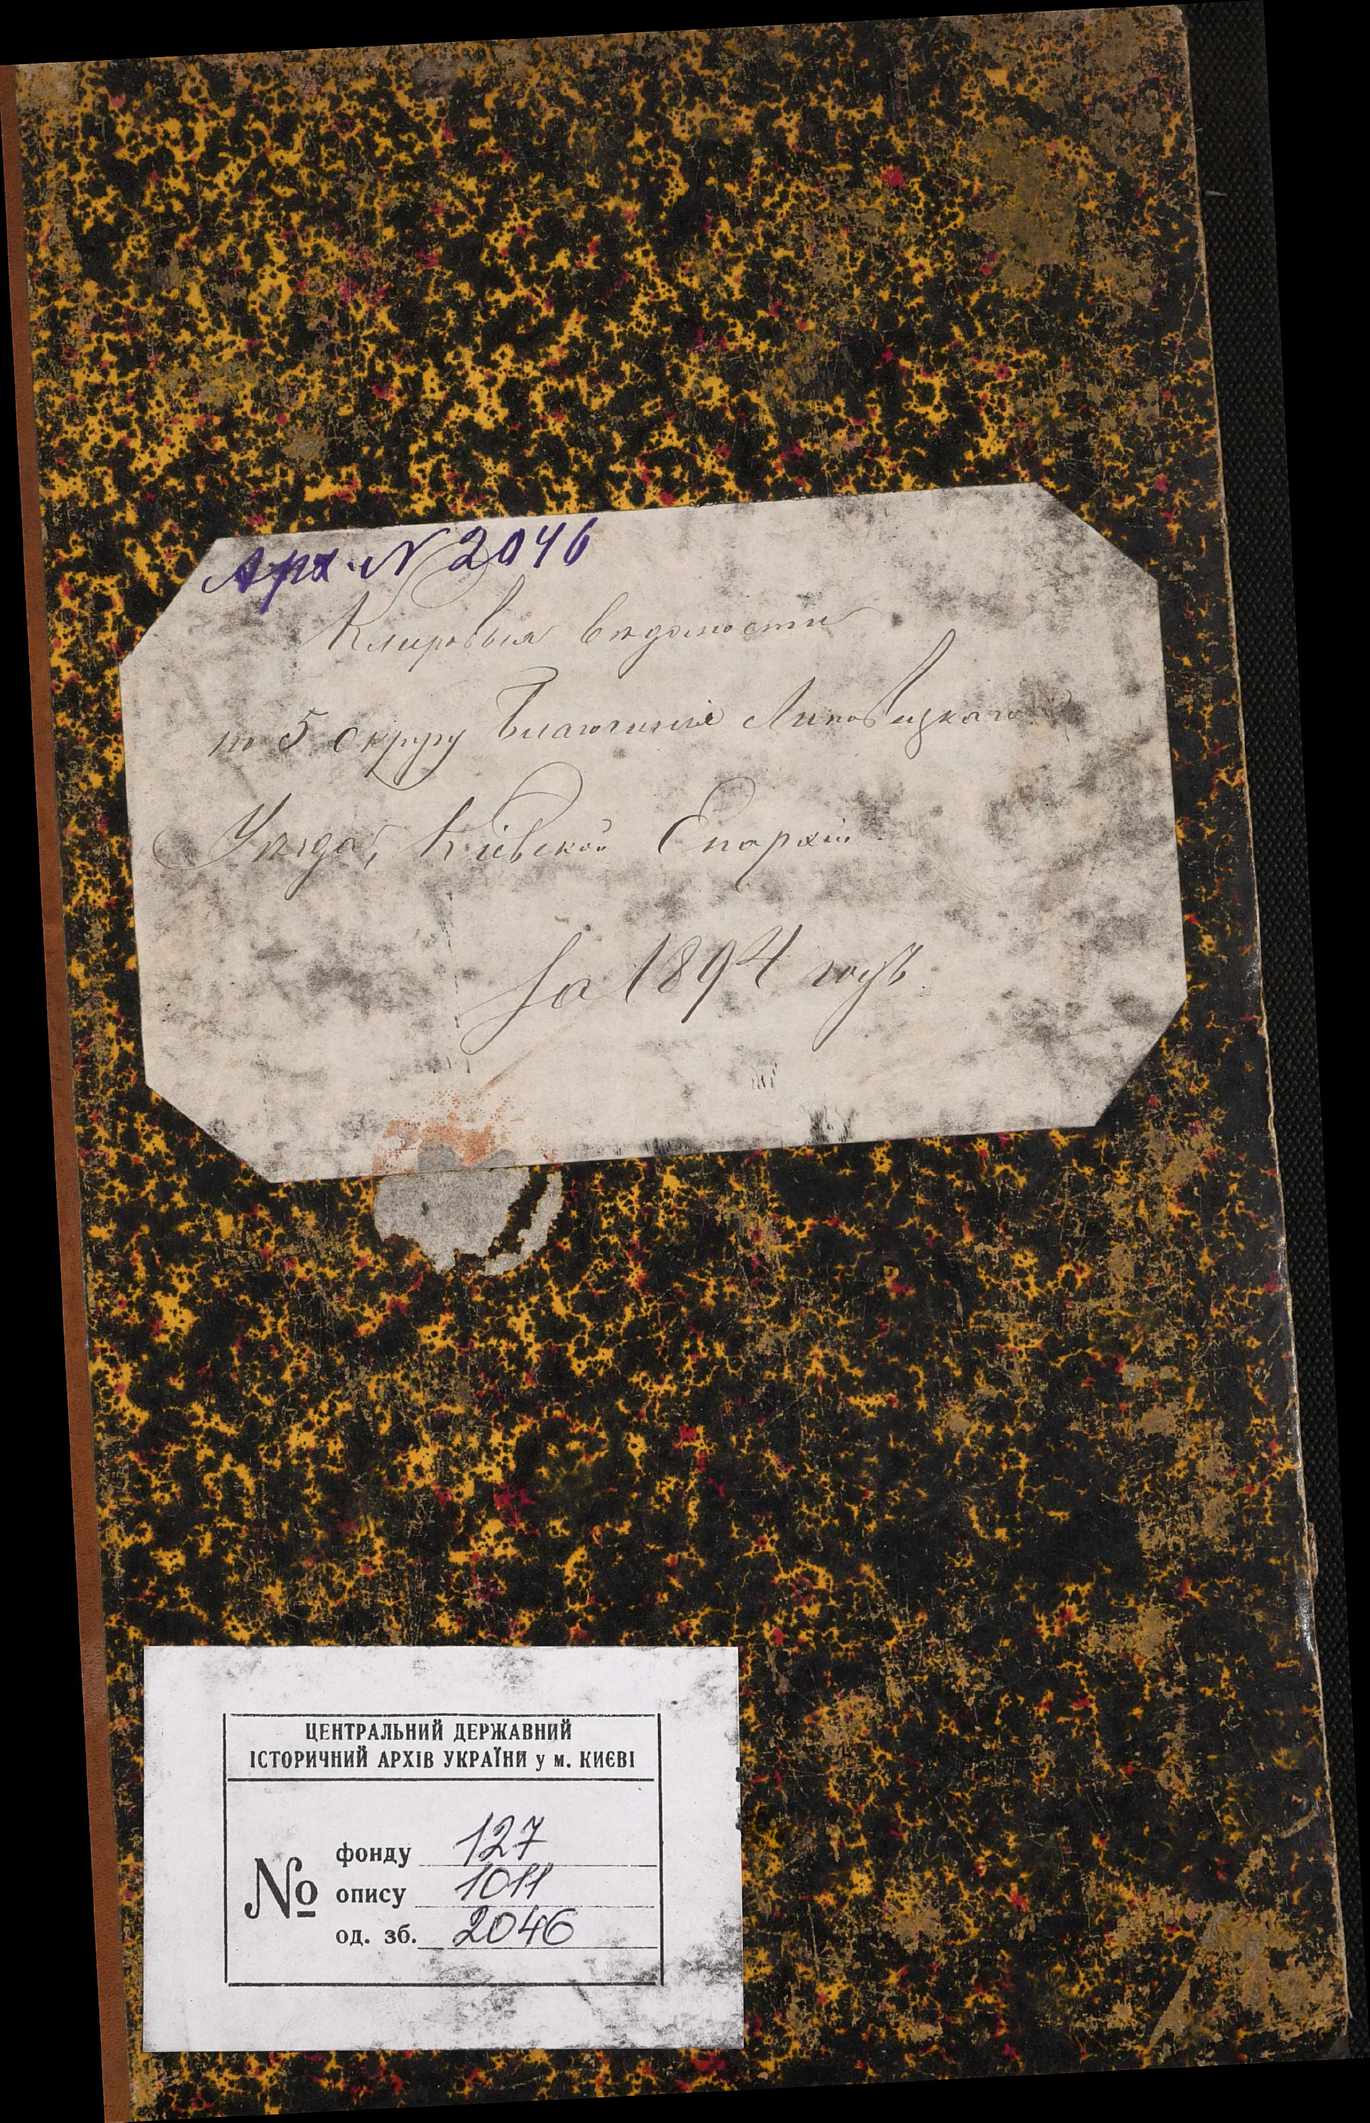 Арх. N 2046
Клировыя вѣдомости
по 5 округу Благочинія Липовецкаго
Уѣзда, Кіевской Епархіи
за 1894 годъ.
ЦЕНТРАЛЬНИЙ ДЕРЖАВНИЙ
ІСТОРИЧНИЙ АРХІВ УКРАЇНИ у м. КИЄВІ
№
фонду 127
опису 1011
од. зб. 2046